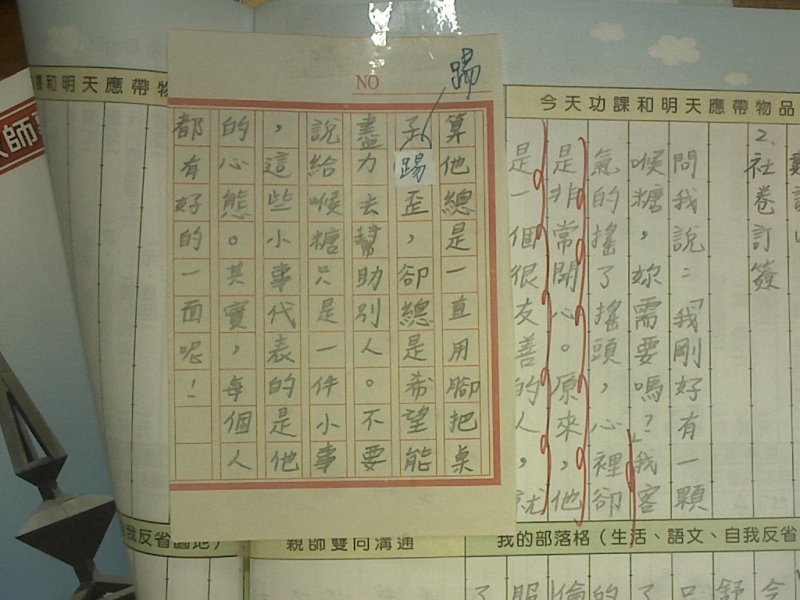 今天功課和明天應帶物品
2、社卷訂簽
問我說：「我剛好有一顆
喉糖，妳需要嗎？」我客
氣的搖了搖頭，心裡卻
是非常開心。原來，他
是一個很友善的人，就
NO
踢
算他總是一直用腳把桌
子踢歪，卻總是希望能
盡力去幫助別人。不要
說給喉糖只是一件小事
，這些小事代表的是他
的心態。其實，每個人
都有好的一面呢！
課和明天應帶物
師
我反省園地）
親師雙向溝通
我的部落格（生活、語文、自我反省